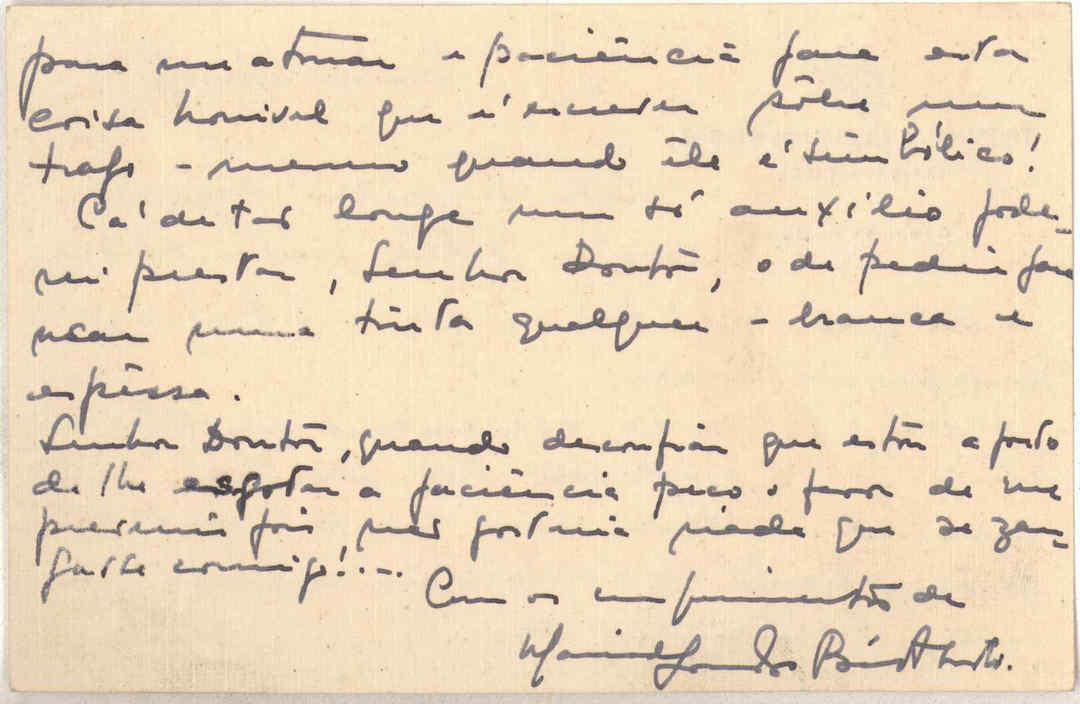 para me aturar e paciência para esta
coisa horrivel que é escrever sôbre um
trapo - mesmo quando êle é simbólico!
Cá de tão longe um só auxílio pode-
mi prestar, Senhor Doutôr, o de pedir para
numa tinta qualquer - branca e
espêssa.
Senhor Doutôr, quando desconfiar que estou a ponto
de lhe esgotar a paciência peço o favor de me
prevenir pois não gostaria nada que se zan-
gasse comigo!...
Com os cumprimentos de